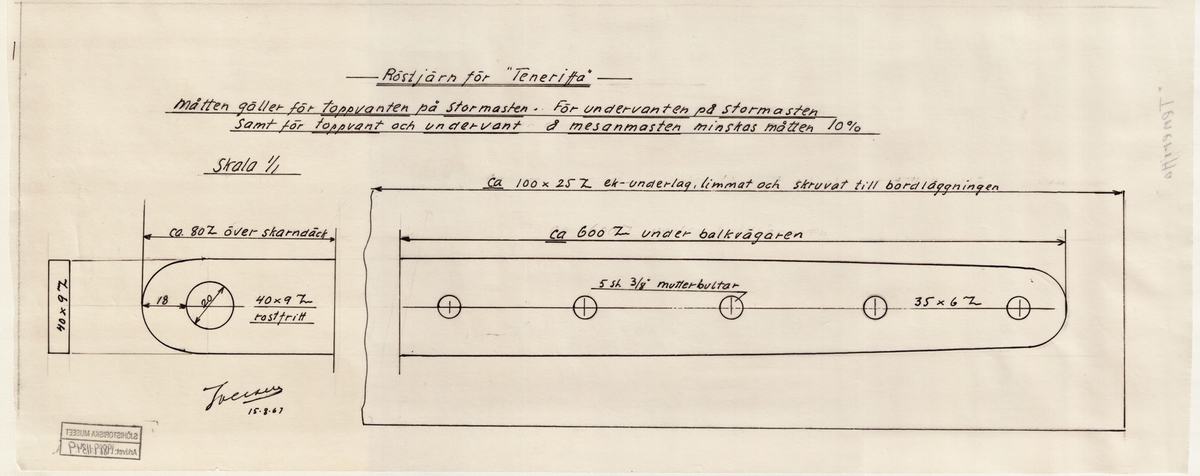 Röstjärn för "Teneriffa"
Måtten gäller för toppvanten på stormasten. För undervanten på stormasten
samt för toppvant och undervant å mesanmasten minskas måtten 10%
Skala 1/1
ca 100 x 25 Z ek-underlag, limmat och skruvat till bordläggningen
ca. 80 Z över skarndäck
ca 600 Z under balkvägaren
40 x 9 Z
18
20
40 x 9 Z
rostfritt
5 st. 3/8" mutterbultar
35 x 6 Z
15.8.67
Teneriffa
SJÖHISTORISKA MUSEET